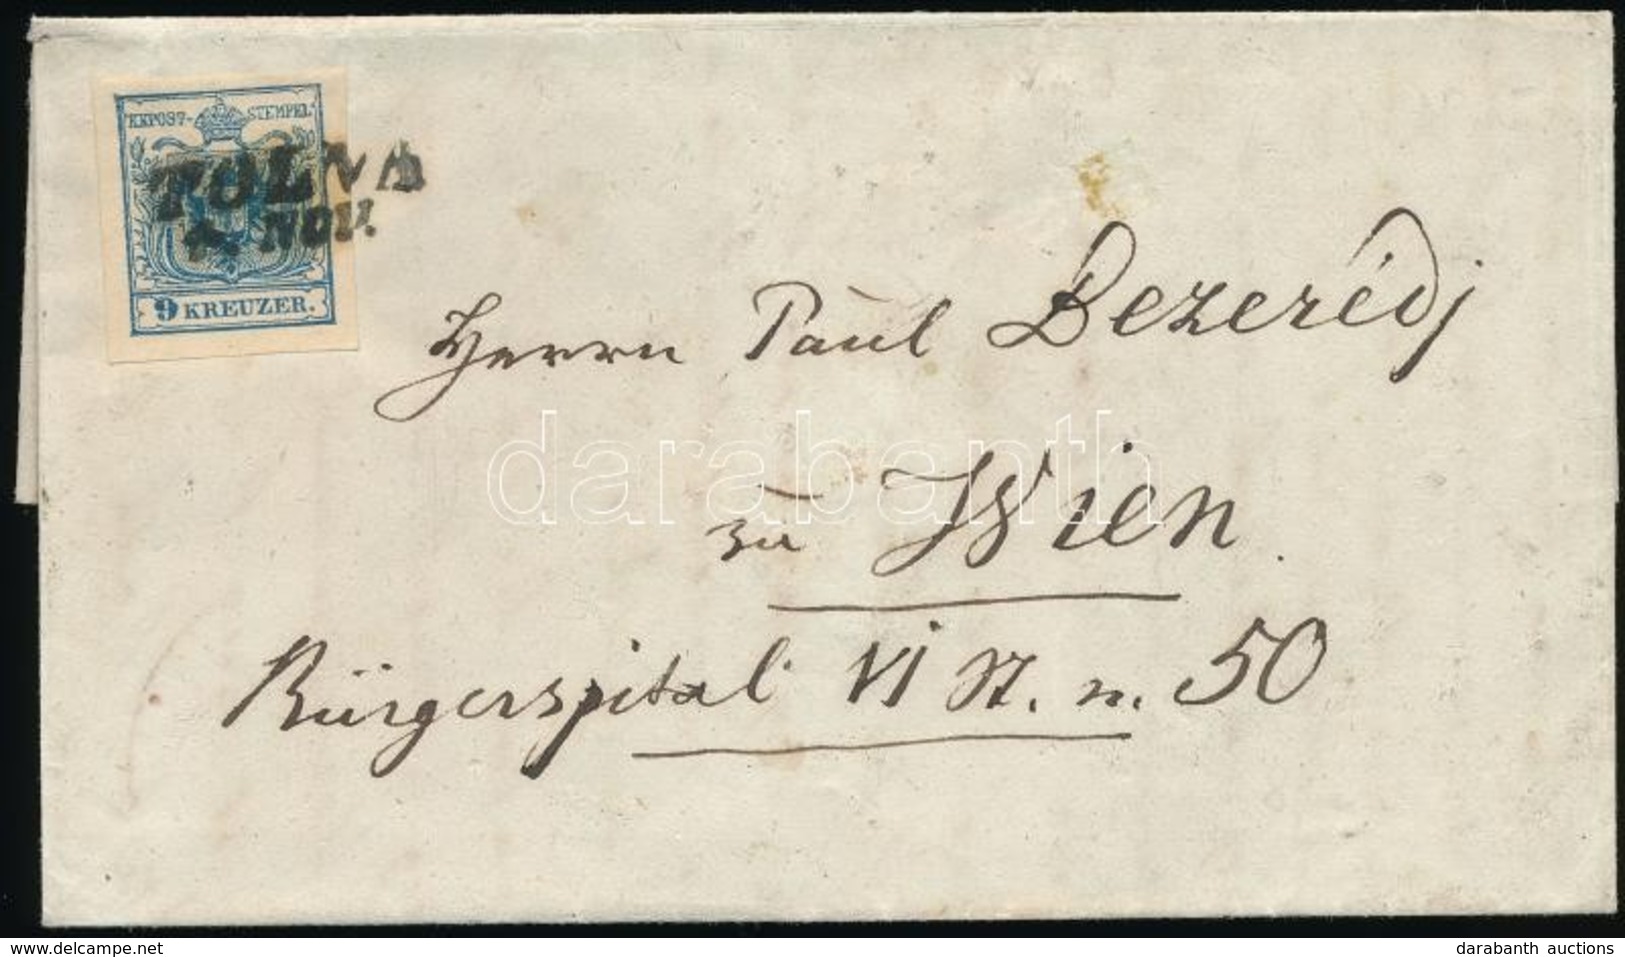 KKPOST-STEMPEL
TOLNA
NOV.
9 KREUZER.
Herrn Paul Bezerédj
darabanth
zu Wien
Bürgerspital VI St. n. 50
www.delcampe.net
darabanth auctions